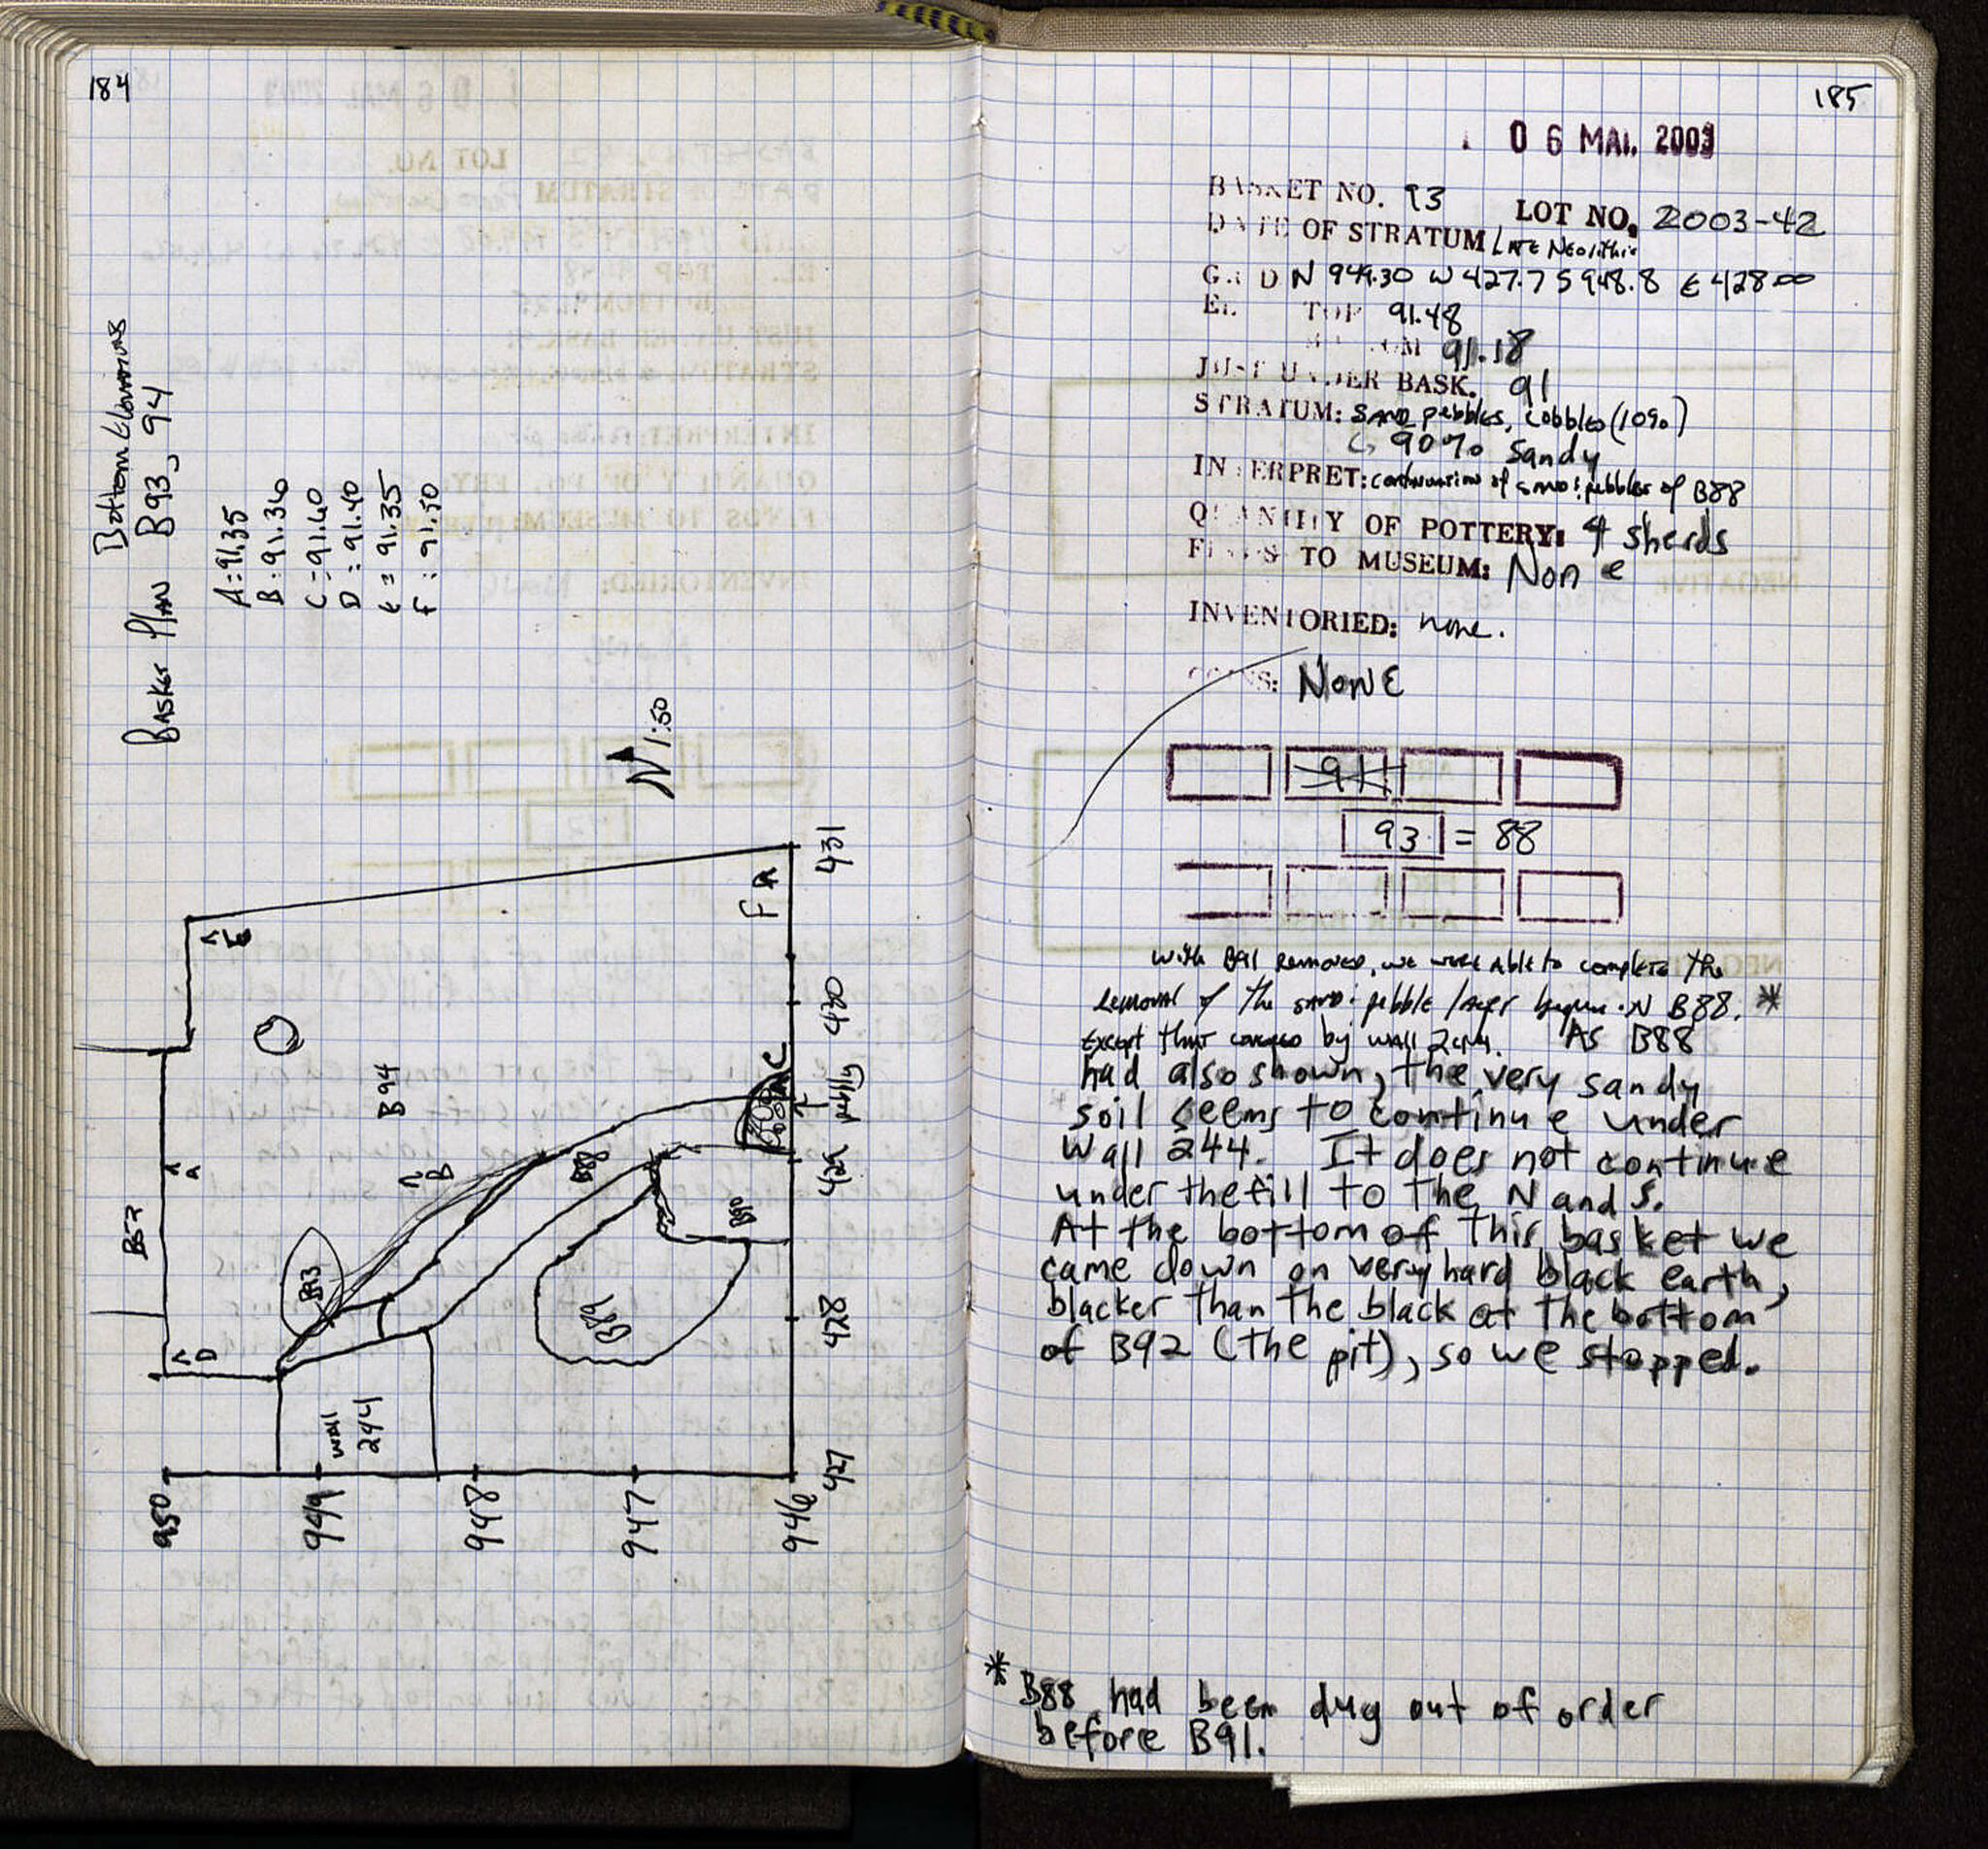 184
Bottom Elevations
Basket Plan B93, 94
A: 91.35
B: 91.36
C: 91.40
D: 91.40
E = 91.35
F: 91.50
N 1:50
E
F
431
430
C
pebbly
B94
B
B88
429
A
B57
B90
B93
B89
428
D
Wall
244
427
950
949
948
947
946
185
06 MAI. 2003
BASKET NO. 93 LOT NO. 2003-42
DATE OF STRATUM Late Neolithic
GRID N 949.30 W 427.7 S 948.8 E 428.00
EL. TOP 91.48
BOTTOM 91.18
JUST UNDER BASK. 91
STRATUM: Sand pebbles, cobbles (10%)
90% Sandy
INTERPRET: continuation of sand: pebbles of B88
QUANTITY OF POTTERY: 4 sherds
FINDS TO MUSEUM: None
INVENTORIED: none.
COINS: None
91
93 = 88
With B91 removed, we were able to complete the
removal of the sand: pebble layer begun in B88. *
Except that covered by wall 244. As B88
had also shown, the very sandy
soil seems to continue under
Wall 244. It does not continue
under the fill to the N and S.
At the bottom of this basket we
came down on very hard black earth,
blacker than the black at the bottom
of B92 (the pit), so we stopped.
* B88 had been dug out of order
before B91.